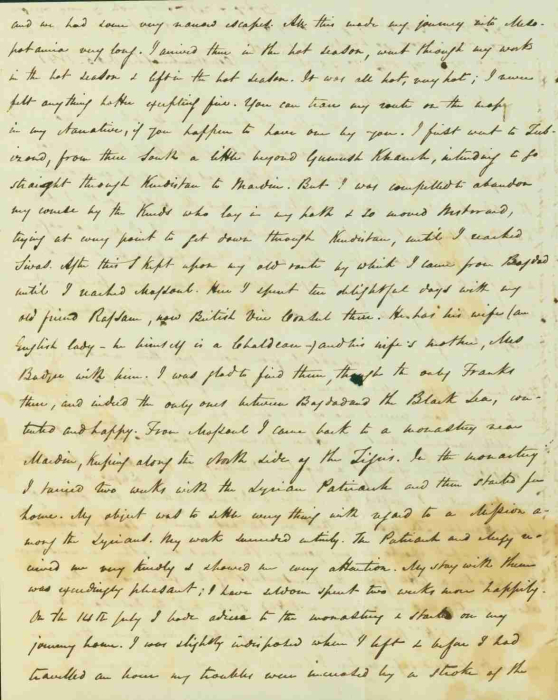 and we had some very narrow escapes. All this made my journey into Meso-
potamia very long. I arrived there in the hot season, went through my work
in the hot season & left in the hot season. It was all hot, very hot; I never
felt anything hotter excepting fire. You can trace my route on the map
in my Narrative, if you happen to have one by you. I first went to Treb-
izond, from there South a little beyond Gumush Khaneh, intending to go
straight through Kurdistan to Mardin. But I was compelled to abandon
my course by the Kurds who lay in my path & so moved Westward,
trying at every point to get down through Kurdistan, until I reached
Sivas. After this I kept upon my old route by which I came from Bagdad
until I reached Mossoul. Here I spent ten delightful days with my
old friend Rassam, now British Vice Consul there. He has his wife (an
English lady - he himself is a Chaldean -) and his wife's mother, Mrs
Badger with him. I was glad to find them, though the only Franks
there, and indeed the only ones between Bagdad and the Black Sea, con-
tented and happy. From Mossoul I came back to a monastery near
Mardin, keeping along the North side of the Tigris. In the monastery
I tarried two weeks with the Syrian Patriarch and then started for
home. My object was to settle every thing with regard to a Mission a-
mong the Syrians. My work succeeded entirely. The Patriarch and clergy re-
ceived me very kindly & showed me every attention. My stay with them
was exceedingly pleasant; I have seldom spent two weeks more happily.
On the 14th July I bade adieu to the monastery & started on my
journey home. I was slightly indisposed when I left & before I had
travelled an hour my troubles were increased by a stroke of the